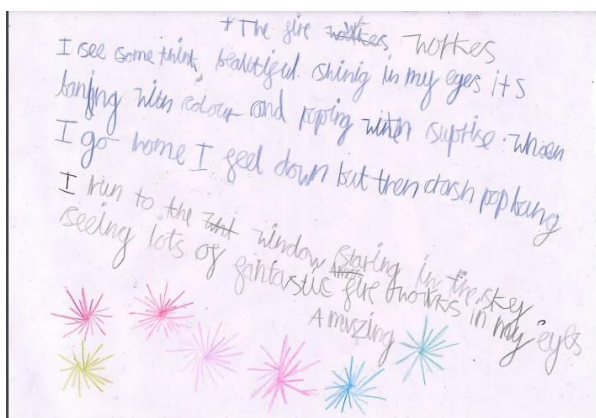 The fire workes
I see some think, beautiful shinig in my eyes its
banjing with colour and poping with suprise. when
I go home I feel down but then crash pop bang
I run to the window staring in the sky
seeing lots of fantarstic fire works in my eyes
Amiszing